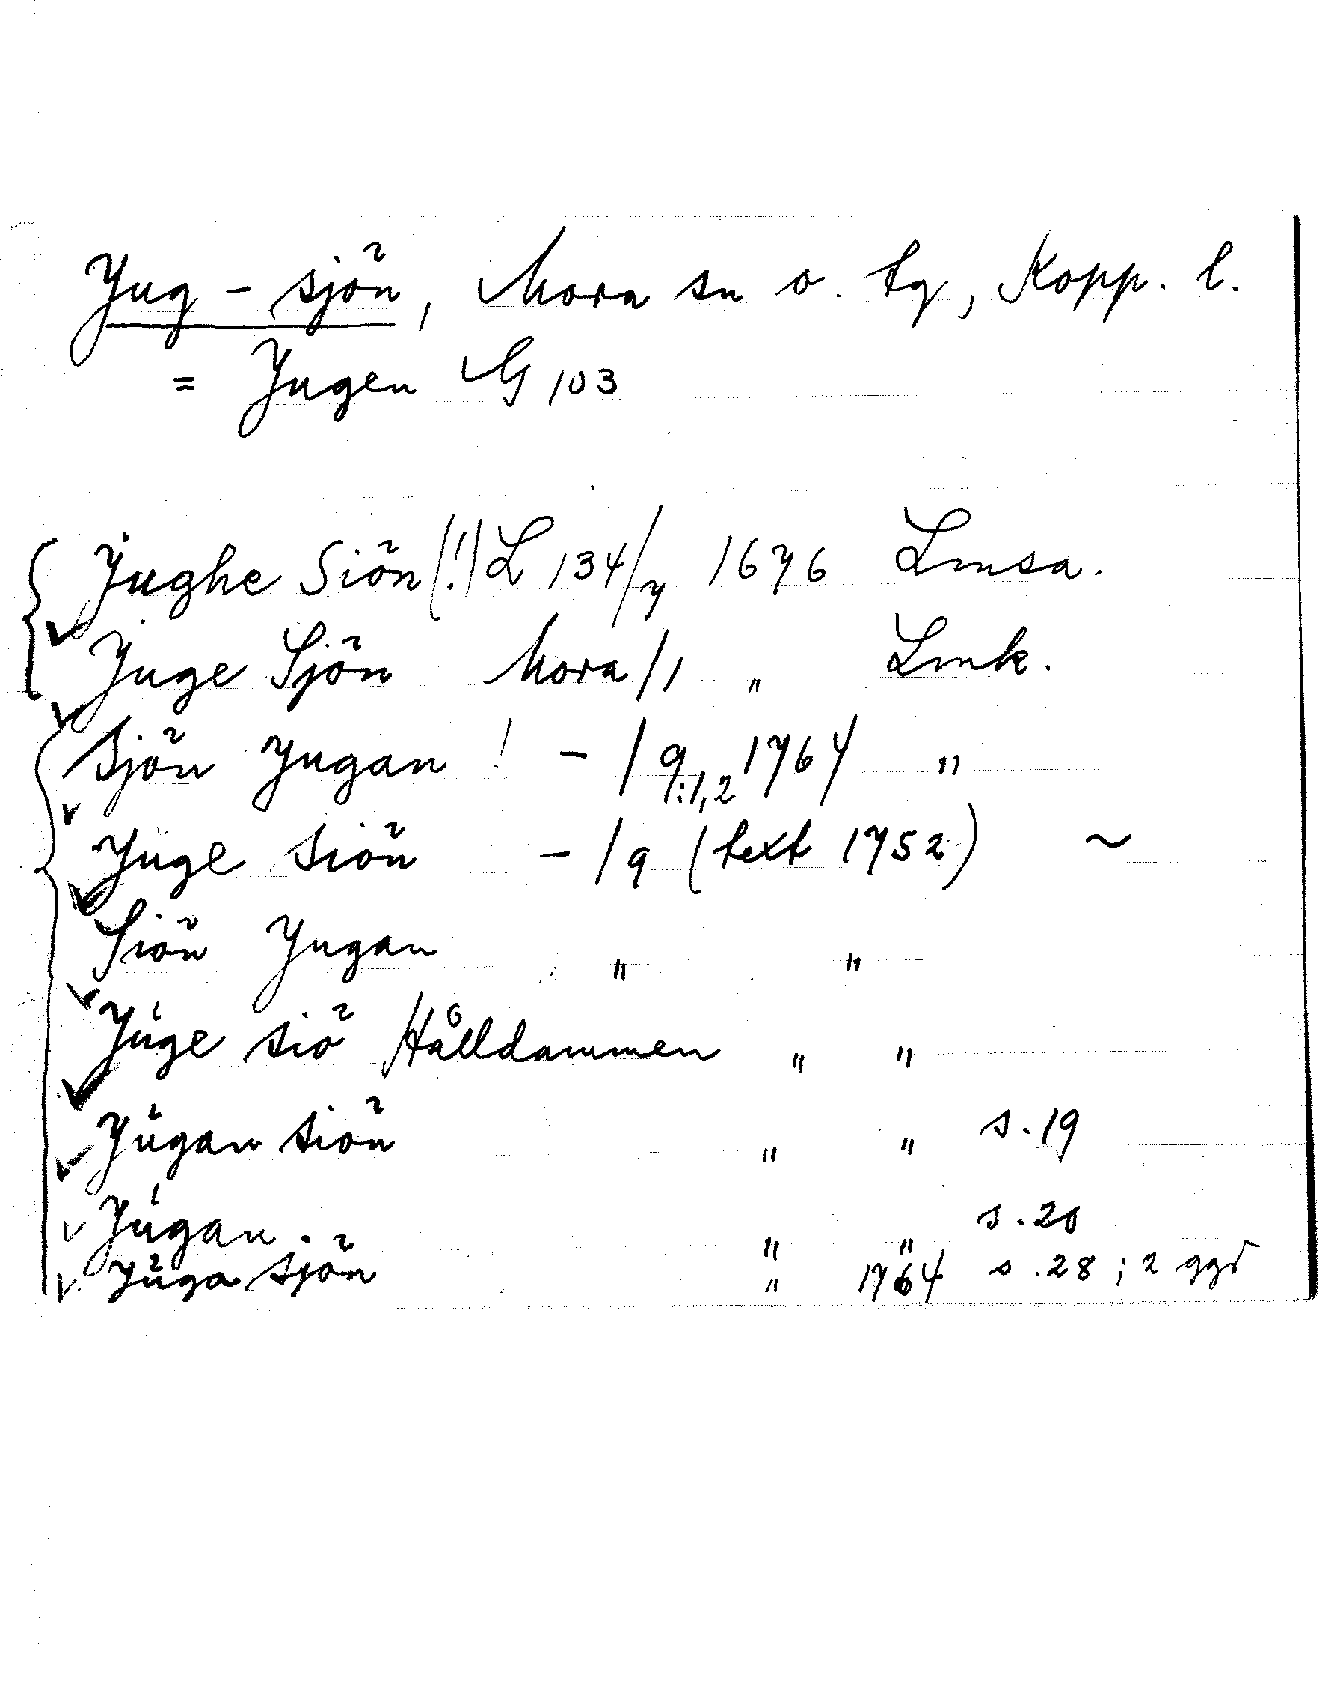 Jug-sjön, Mora sn o. tg, Kopp. l.
= Jugen G 103
Jughe Siön (!) L 134/7 1676 Lmsa.
Juge Sjön Mora/1 " Lmk.
Sjön Jugan ! - /9:1,2 1764 "
Juge siön - /9 (text 1752) ~
Siön Jugan " "
Juge siö Hålldammen " "
Jugan siön " " s. 19
Jugan " " s. 20
Juga sjön " 1764 s. 28; 2 ggr